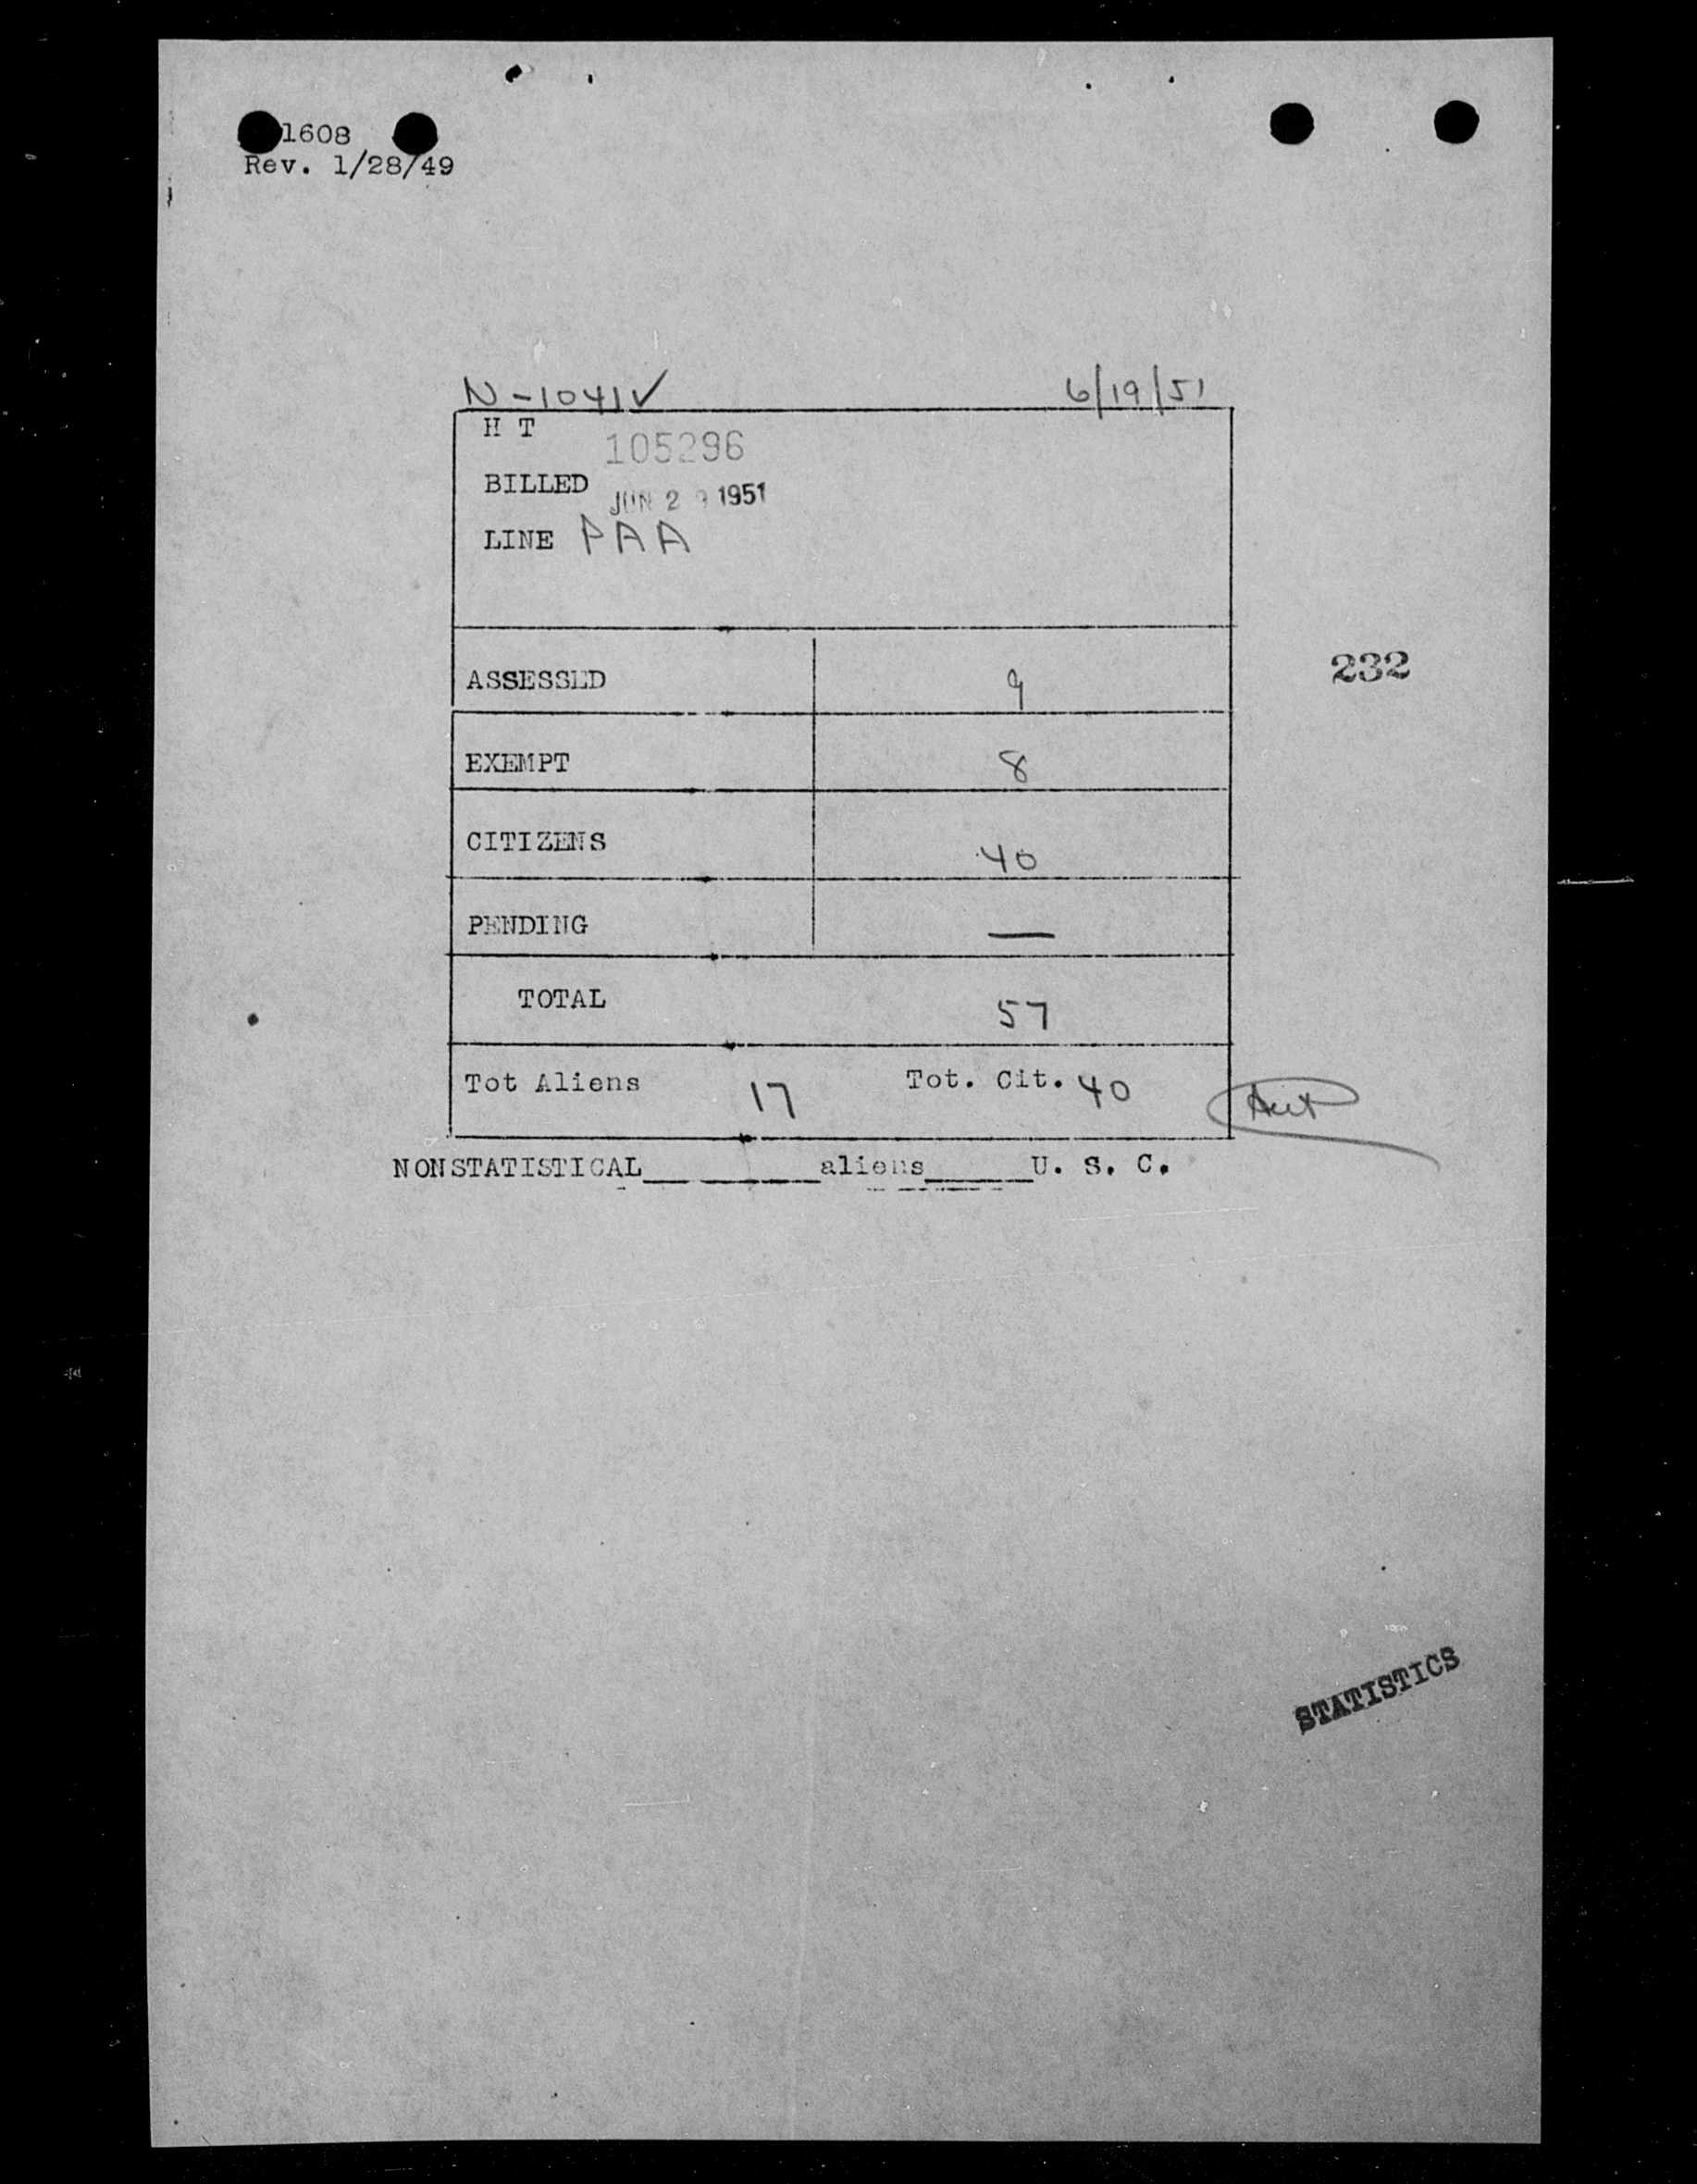 1608
Rev. 1/28/49
N-1041V 6/19/51
H T 105296
BILLED JUN 2 1951
LINE PAA
ASSESSED 9
232
EXEMPT 8
CITIZENS 40
PENDING —
TOTAL 57
Tot Aliens 17 Tot. Cit. 40
NONSTATISTICAL________aliens_____U. S. C.
STATISTICS